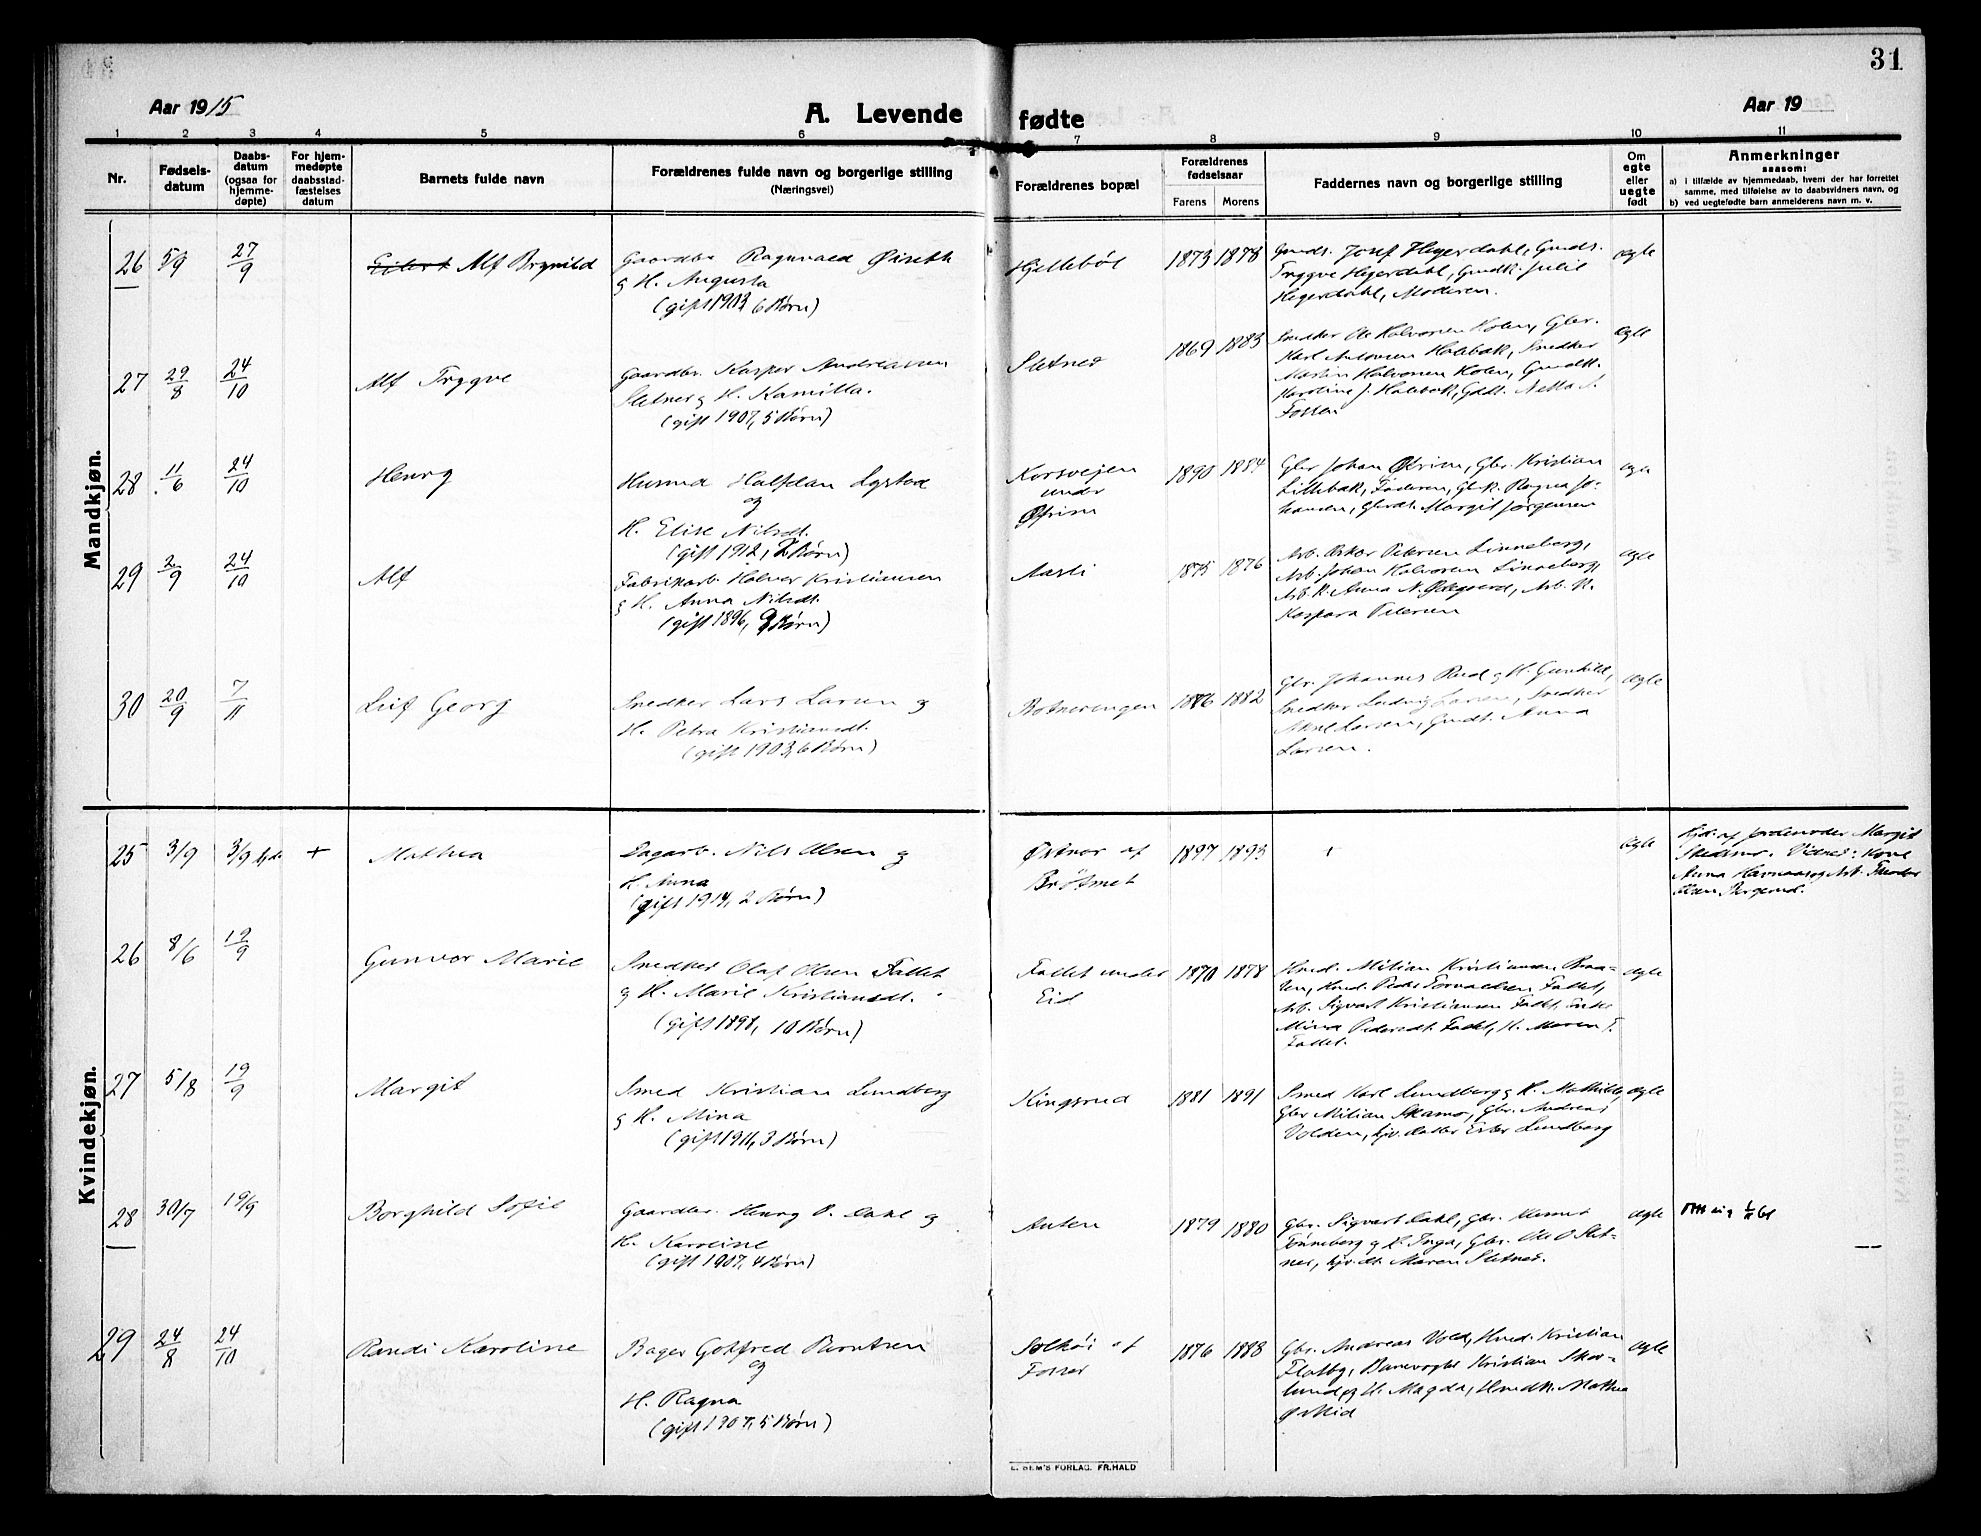 31
Aar 1915
A. Levende fødte
Aar 19
1 2 3 4 5 6 7 8 9 10 11
Nr.
Fødsels-
datum
Daabs-
datum
(ogsaa for
hjemme-
døpte)
For hjem-
medøpte
daabsstad-
fæstelses
datum
Barnets fulde navn
Forældrenes fulde navn og borgerlige stilling
(Næringsvei)
Forældrenes bopæl
Forældrenes
fødselsaar
Farens Morens
Faddernes navn og borgerlige stilling
Om
egte
eller
uegte
født
Anmerkninger
saasom:
a) i tilfælde av hjemmedaab, hvem der har forrettet
samme, med tilføielse av to daabsvidners navn, og
b) ved uegtefødte barn anmelderens navn m. v.
Mandkjøn.
26 5/9 27/9 Alf Brynild
Gaardbr. Ragnvald
og H. Augusta
(gift 1903, 6 Børn)
Hellebøl 1873 1878
Gmds. Josef Hegerdahl, Gmds.
Trygve Hegerdahl, Gmdk. Julie
Hegerdahl, Moderen.
ægte
27 29/8 24/10 Alf Trygve
Gaardbr. Kasper Andreassen
Sletner og H. Kamilla.
(gift 1907, 5 Børn)
Sletner 1869 1883
Snedker Ole Halvorsen Kolen, Gbr.
Karl Antonsen Holebæk, Snedker
Martin Halvorsen Kolen, Gmdk.
Karoline J. Holebæk, Gdt. Netta S.
Fossen
ægte
28 11/6 24/10 Henry
Husmd Halfdan Lystad
og
H. Elise Nilsdt.
(gift 1912, 2 Børn)
Korsvejen
under
1890 1884
Gbr Johan Kristian
Lillebæk, Faderen, Gbk. Ragna Jo-
hansen, Gbrdt. Margit Jørgensen
29 2/9 24/10 Alf
Fabrikarb. Halver Kristiansen
og H. Anna Nilsdt.
(gift 1896, 9 Børn)
Aasli 1875 1876
Arb. Oskar Petersen Linneberg,
Arb. Johan Halvorsen Linneberg,
Arb. K. Anna N. Ødegaard, Arb. K.
Kaspara Petersen
ægte
30 20/9 7/11 Leif Georg
Snedker Lars Larsen og
H. Petra Kristiansdt.
(gift 1903, 6 Børn)
Botnerengen 1876 1882
Gbr. Johannes Rud og H. Gunhild,
Snedker Ludvig Larsen, Snedker
Larsen, Gmdt. Anna
Larsen.
ægte
Kvindekjøn.
25 3/9 3/9 hjd. + Mathea
Dagarb. Nils Olsen og
H. Anna
(gift 1914, 2 Børn)
Østnor af
Brøtmet
1897 1893
+
ægte
Hjd. af jordmoder Margit
Skedsmo. Vidner: Kone
Anna og Arb. Theodor
26 8/6 19/9 Gunvor Marie
Snedker Olaf Olsen Fallet
og H. Marie Kristiansdt.
(gift 1898, 10 Børn)
Fallet under
Eid
1870 1878
Hmd. Milian Kristiansen Braa-
ten, Hmd. Peder Torvaldsen Fallet,
Arb. Sigvart Kristiansen Fallet, Enke
Mina Pedersdt. Fallet, H. Maren T.
Fallet.
ægte
27 5/8 19/9 Margit
Smed Kristian Lundberg
og H. Mina
(gift 1911, 3 Børn)
Kingsrud 1881 1891
Smed Karl Lundberg og H. Mathilde,
Gbr Milian Skamo, Gbr. Andreas
Volden, hjv. datter Ester Lundberg
ægte
28 30/7 19/9 Borghild Sofie
Gaardbr. Henry P. Dahl og
H. Karoline
(gift 1907, 4 Børn)
Auten 1879 1880
Gbr. Sigvart Dahl, Gbr.
Tønneberg og H. Inga, Gbr. Ole O Slet-
ner, hjv. dt. Maren Sletner.
ægte
29 24/8 24/10 Randi Karoline
Bager Gotfred Berntsen
og
H. Ragna
(gift 1907, 5 Børn)
Solhøi af
Fosser
1876 1888
Gbr. Andreas Vold, Hmd. Kristian
Flatby, Banevogter Kristian Skov-
lund og H. Magda, Hmdk. Mathea
ægte
FORLAG. FR. HALD